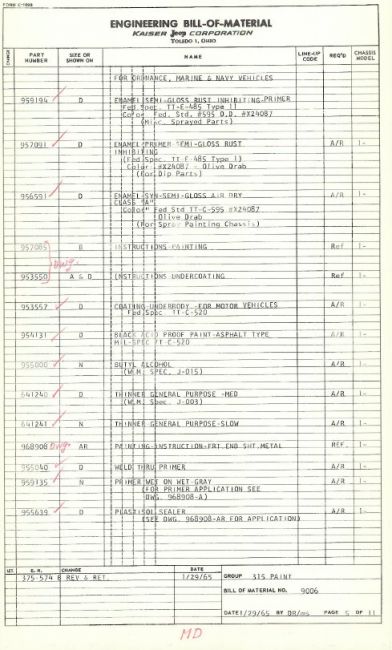 FORM C-1098
ENGINEERING BILL-OF-MATERIAL
KAISER Jeep CORPORATION
TOLEDO 1, OHIO
CHANGE PART NUMBER SIZE OR SHOWN ON NAME LINE-UP CODE REQ'D CHASSIS MODEL
FOR ORDNANCE, MARINE & NAVY VEHICLES
959194 D ENAMEL SEMI-GLOSS RUST INHIBITING-PRIMER
Fed Spec. TT-E-485 Type II
Color Fed. Std. #595 O.D. #X24087
(Misc. Sprayed Parts)
957091 D ENAMEL PRIMER SEMI-GLOSS RUST A/R 1-
INHIBITING
(Fed Spec. TT E 485 Type I)
Color #X24087 - Olive Drab
(For Dip Parts)
956591 D ENAMEL-SYN-SEMI-GLOSS AIR DRY A/R 1-
CLASS "A"
Color" Fed Std TT-C-595 #X24087
Olive Drab
(For Spray Painting Chassis)
957085 B INSTRUCTIONS-PAINTING Ref 1-
Dwg.
953550 A & D INSTRUCTIONS UNDERCOATING Ref 1-
953557 D COATING-UNDERBODY -FOR MOTOR VEHICLES A/R 1-
Fed Spec TT-C-520
954131 D BLACK ACID PROOF PAINT-ASPHALT TYPE A/R 1-
MIL-SPEC TT-C-520
955000 N BUTYL ALCOHOL A/R 1-
(W.M. SPEC. J-015)
641240 D THINNER GENERAL PURPOSE -MED A/R 1-
(W.M. Spec. J-003)
641241 N THINNER GENERAL PURPOSE-SLOW A/R 1-
968908 Dwg. AR PAINTING-INSTRUCTION-FRT.END SHT.METAL REF. 1-
955040 D WELD THRU PRIMER A/R 1-
959135 N PRIMER WET ON WET-GRAY A/R 1-
(FOR PRIMER APPLICATION SEE
DWG. 968908-A)
955639 D PLASTISOL SEALER A/R 1-
(SEE DWG. 968908-AR FOR APPLICATION)
LET. E. R. CHANGE DATE
375-574 B REV & RET. 1/29/65
GROUP 315 PAINT
BILL OF MATERIAL NO. 9006
DATE 1/29/65 BY DB/ms PAGE 5 OF 11
MD